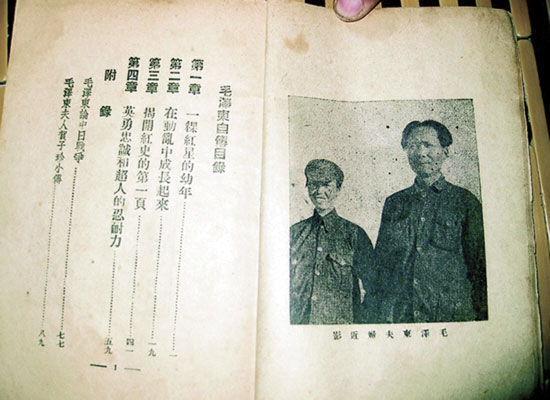 毛澤東夫婦近影
毛澤東自傳目錄
第一章 一顆紅星的幼年……一
第二章 在動亂中成長起來……一九
第三章 揭開紅史的第一頁……四一
第四章 英勇忠誠和超人的忍耐力……五九
附錄
毛澤東論中日戰爭……七七
毛澤東夫人賀子珍小傳……八九
— 1 —